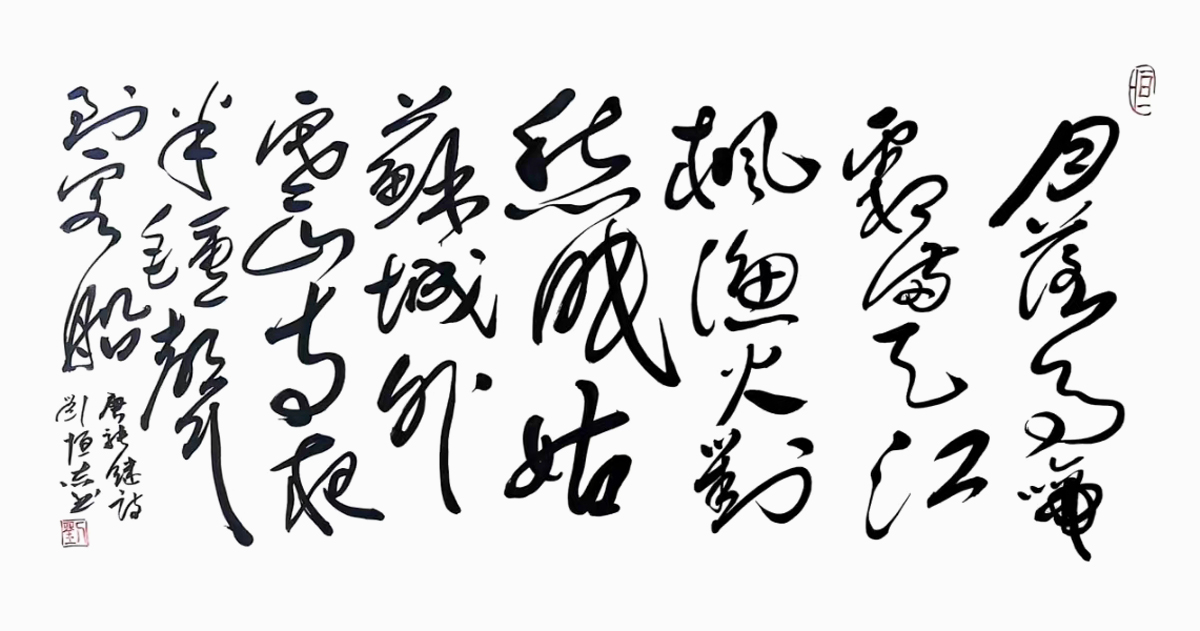 恒
月落烏啼
霜滿天江
楓漁火對
愁眠姑
蘇城外
寒山寺夜
半鐘聲
到客船
唐張繼詩
劉恒志书
劉